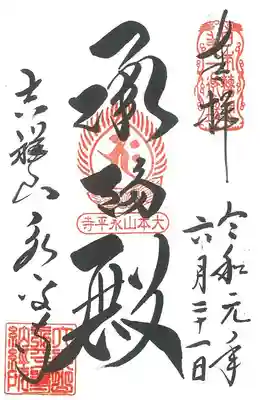 奉拝
令和元年
六月二十一日
承陽殿
大本山永平寺
吉祥山 永平寺